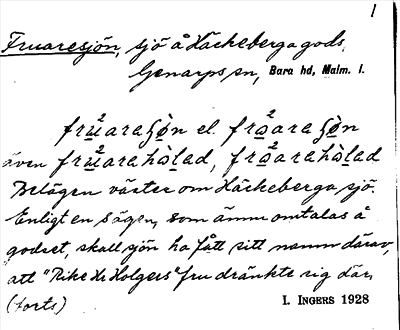 1
Fruaresjön, sjö å Häckeberga gods,
Genarps sn, Bara hd, Malm. l.
frŭ²araʃøn el. frə²araʃøn
även frŭ²arahòlad, frə²arahòlad
Belägen väster om Häckeberga sjö.
Enligt en sägen, som ännu omtalas å
godset, skall sjön ha fått sitt namn därav,
att "Rike Hr Holgers" fru dränkte sig där,
(forts)
I. INGERS 1928